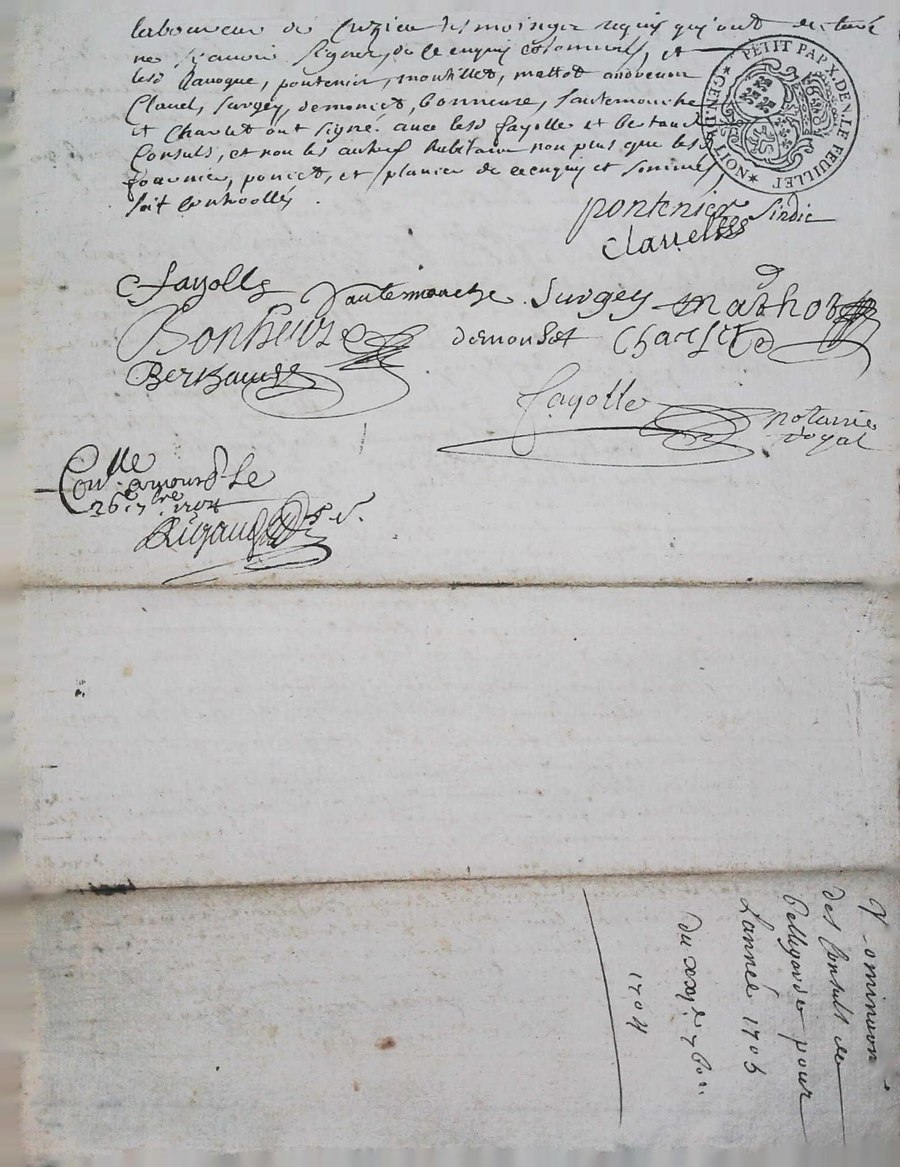 laboureur de Cuzieu les moinger requis qui ont declaré
ne scavoir signer, de ce enquis et sommés, et
lesd Ravogue, pontenier, moullet, mathot
Clavel, Surgey, demonset, bonneure, Jautemouche
et Charlet ont signé. avec lesd fayolle et
Consuls, et non les autres habitans non plus que lesd
fournier, poncet, et planier de ce enquis et sommés
soit controollés.
PETIT PAP X. DEN. LE FEUILLET
pontenier Sindic
Clavel
C fayolle Jautemouche Surgey mathot
Bonheure demonset Charlet
fayolle notaire
royal
Con.lle le
26e 7bre 1704
Rigaud
Nominaon
des Consuls de
bellegarde pour
Lannée 1705
du 7bre
1704